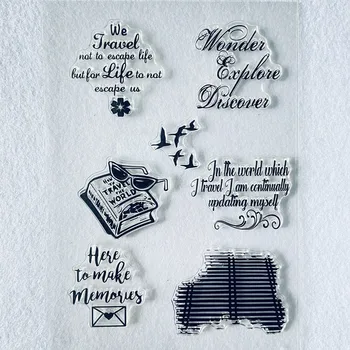 We
Travel
not to escape life
but for Life to not
escape us
Wonder
Explore
Discover
HOW TO
TRAVEL THE
WORLD
In the world which
I travel I am continually
updating myself
Here
to make
Memories